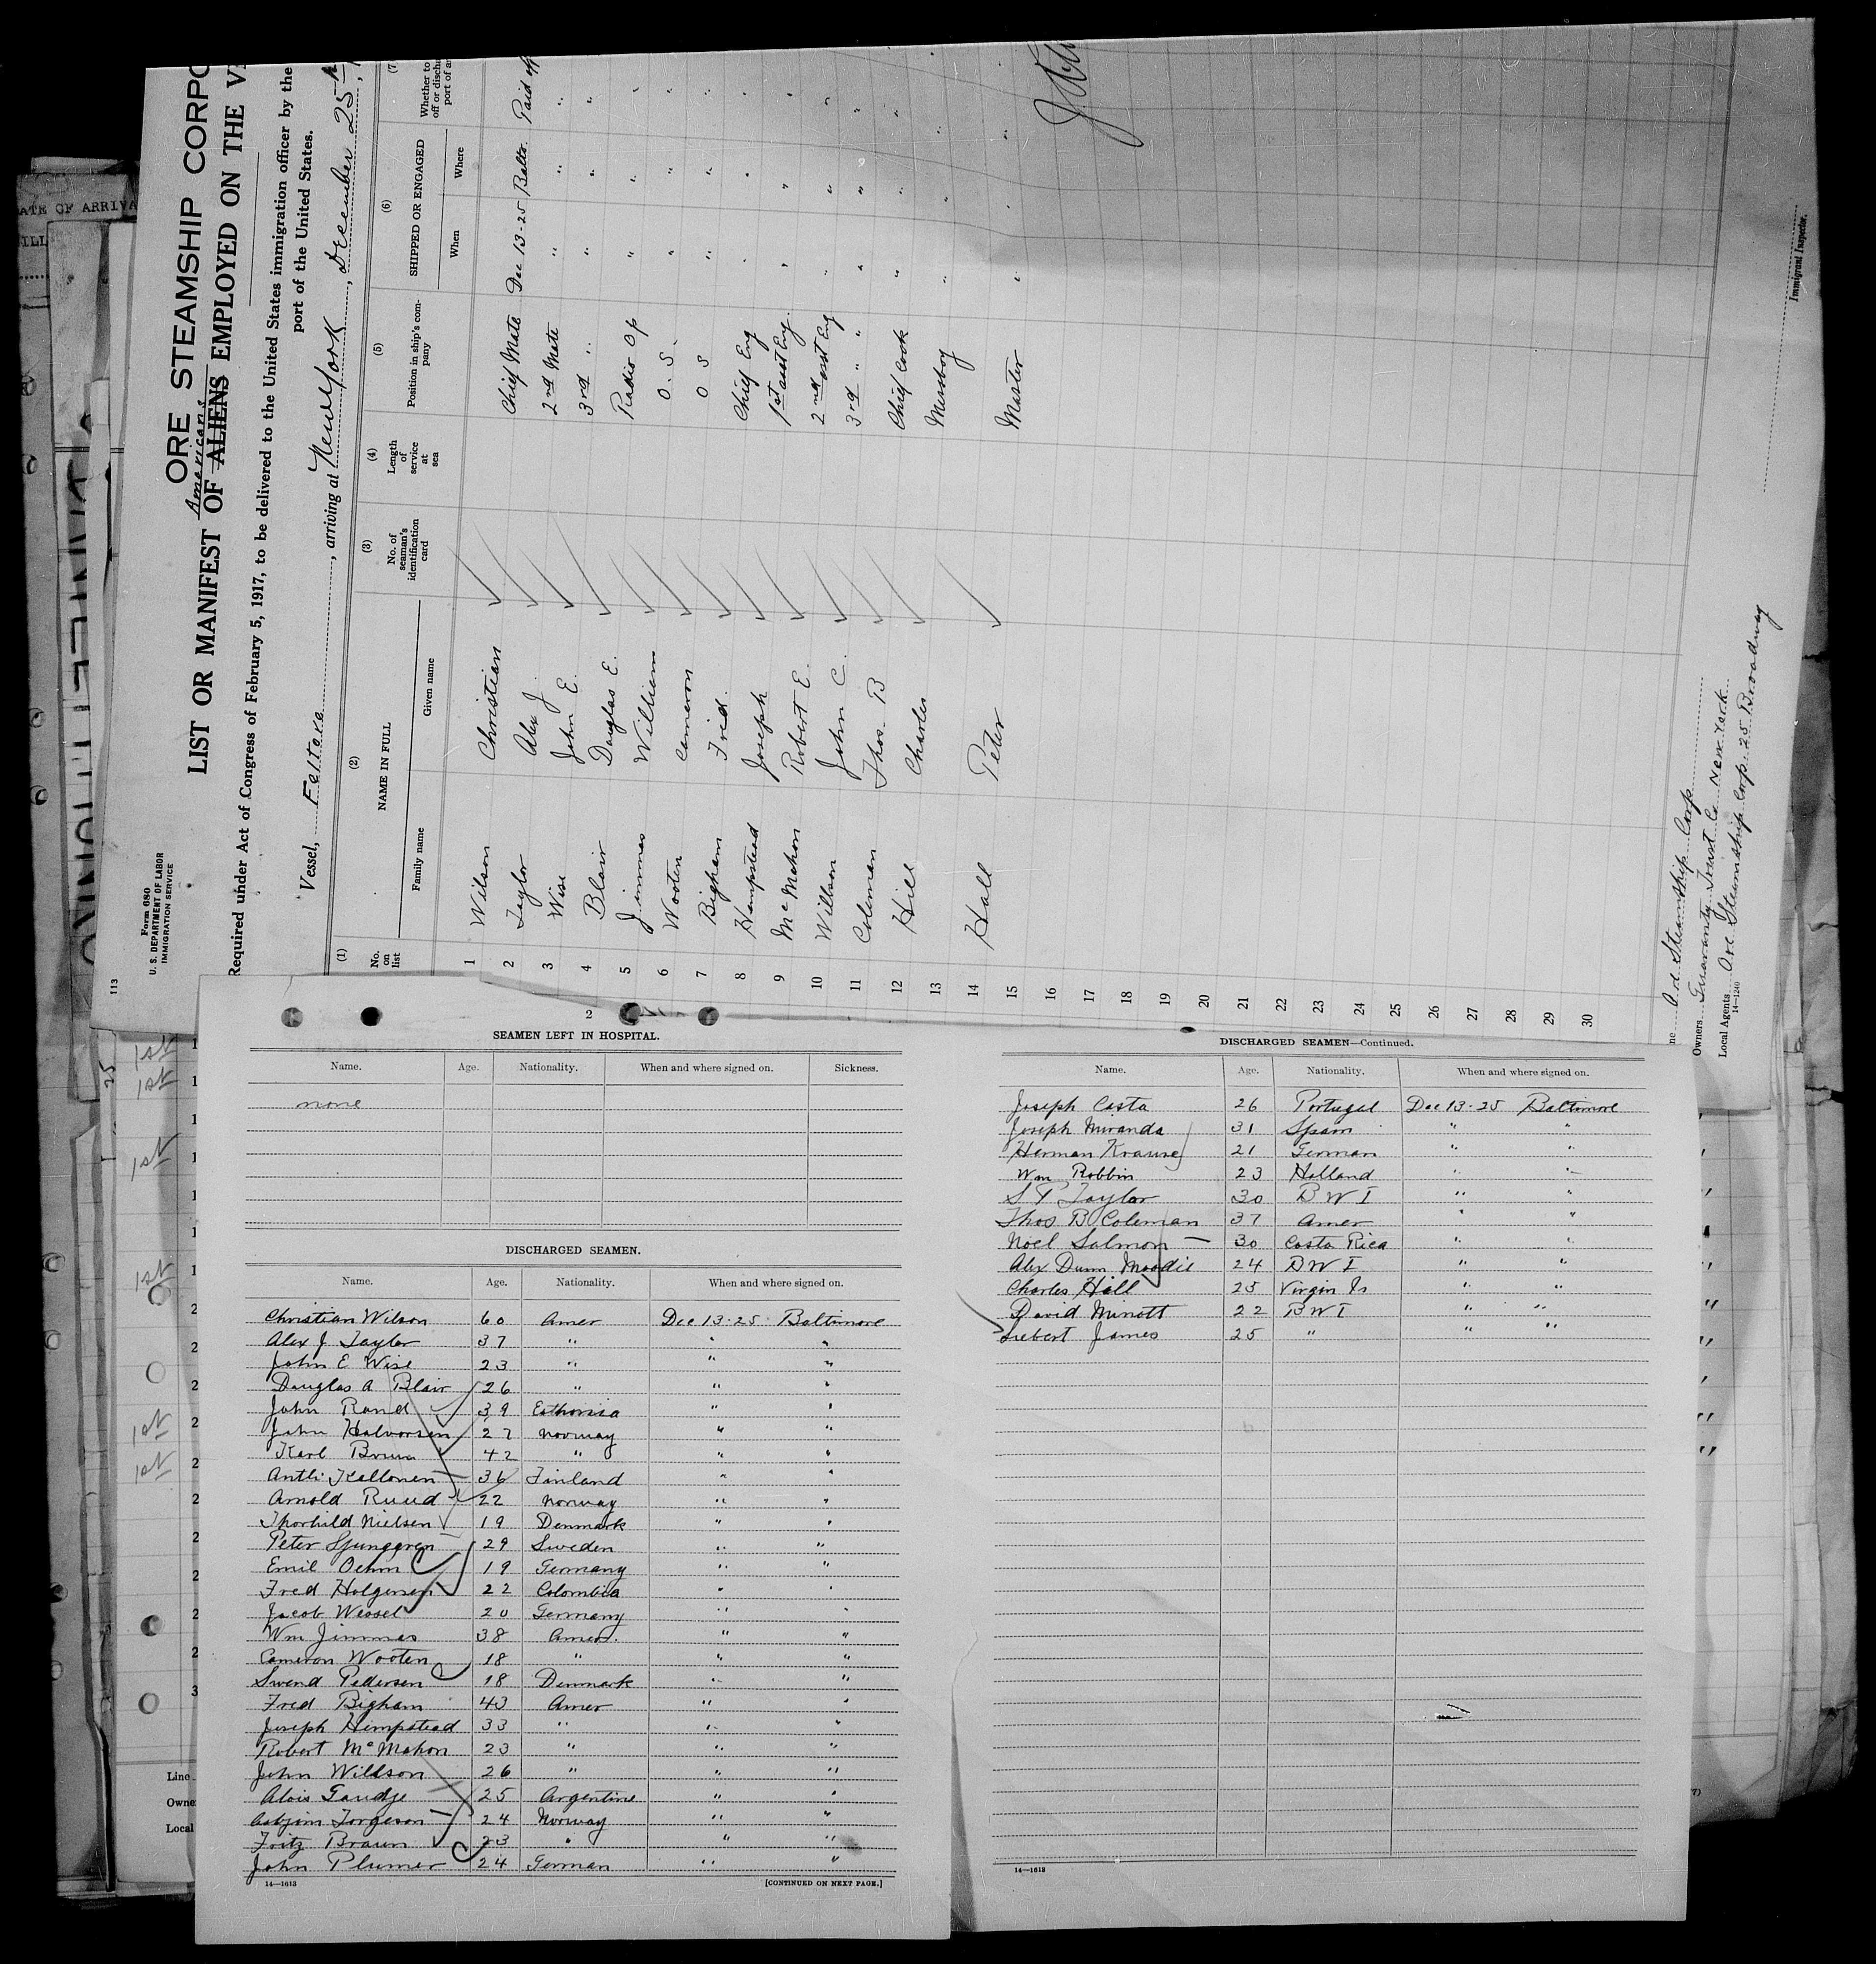 ATE OF ARRIVA
ILL
113
Form 680
U. S. DEPARTMENT OF LABOR
IMMIGRATION SERVICE
ORE STEAMSHIP CORPO
Americans
LIST OR MANIFEST OF ALIENS EMPLOYED ON THE V
Required under Act of Congress of February 5, 1917, to be delivered to the United States immigration officer by the
port of the United States.
Vessel, Feltore, arriving at New York, December 25th, 1
(1) (2) (3) (4) (5) (6) (7
No. on list NAME IN FULL No. of seaman's identification card Length of service at sea Position in ship's company SHIPPED OR ENGAGED Whether to off or discha port of ar
Family name Given name When Where
1 Wilson Christian Chief Mate Dec 13-25 Balto. Paid off
2 Taylor Alex J. 2nd Mate " " "
3 Wise John E. 3rd " " " "
4 Blair Douglas E. Radio Op " " "
5 Jimmas William O. S. " " "
6 Wooten Cameron O S " " "
7 Bigham Fred. Chief Eng " " "
8 Hempstead Joseph 1st asst Eng. " " "
9 McMahon Robert E. 2nd asst Eng " " "
10 Willson John C. 3rd " " " " "
11 Coleman Thos. B Chief Cook " " "
12 Hill Charles Messboy " " "
13
14 Hall Peter Master " "
15
16
17
18
19
20
21
22
23
24
25
26
27
28
29
30
ne Ore Steamship Corp
Owners Guaranty Trust Co New York
Local Agents Ore Steamship Corp. 25 Broadway
14—1240
Immigrant Inspector.
2
SEAMEN LEFT IN HOSPITAL.
Name. Age. Nationality. When and where signed on. Sickness.
none
DISCHARGED SEAMEN.
Name. Age. Nationality. When and where signed on.
Christian Wilson 60 Amer Dec 13-25 Baltimore
Alex J Taylor 37 " " "
John E Wise 23 " " "
Douglas A Blair 26 " " "
John Rand 39 Esthonia " "
John Halvorsen 27 Norway " "
Karl Bruun 42 " " "
Antti Kallonen 36 Finland " "
Arnold Ruud 22 Norway " "
Thorhild Nielsen 19 Denmark " "
Peter Ljunggren 29 Sweden " "
Emil Oehm 19 Germany " "
Fred Holgersen 22 Colombia " "
Jacob Wessel 20 Germany " "
Wm Jimmas 38 Amer. " "
Cameron Wooten 18 " " "
Swend Pedersen 18 Denmark " "
Fred Bigham 43 Amer " "
Joseph Hempstead 33 " " "
Robert McMahon 23 " " "
John Willson 26 " " "
Alois Gandje 25 Argentine " "
Torgeson 24 Norway " "
Fritz Braun 23 " " "
John Plumer 24 German " "
14—1613
[CONTINUED ON NEXT PAGE.]
DISCHARGED SEAMEN—Continued.
Name. Age. Nationality. When and where signed on.
Joseph Costa 26 Portugal Dec 13-25 Baltimore
Joseph Miranda 31 Spain " "
Herman Krause 21 German " "
Wm Robbin 23 Holland " "
S P Taylor 30 B W I " "
Thos B Coleman 37 Amer " "
Noel Salmon 30 Costa Rica " "
Alex Dunn Moodie 24 B W I " "
Charles Hill 25 Virgin Is " "
David Minott 22 B W I " "
James 25 " " "
14—1613
1st
1st
1st
1st
1st
1st
25
Line
Owne
Local